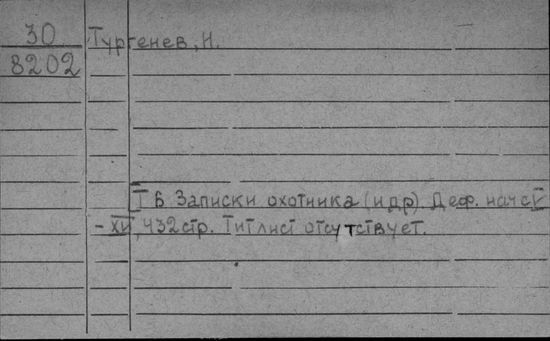 30
8202
Тургенев, И.
Т 6 Записки охотника (и др). Деф. нач с V
- XII, 432 стр. Титлист отсутствует.